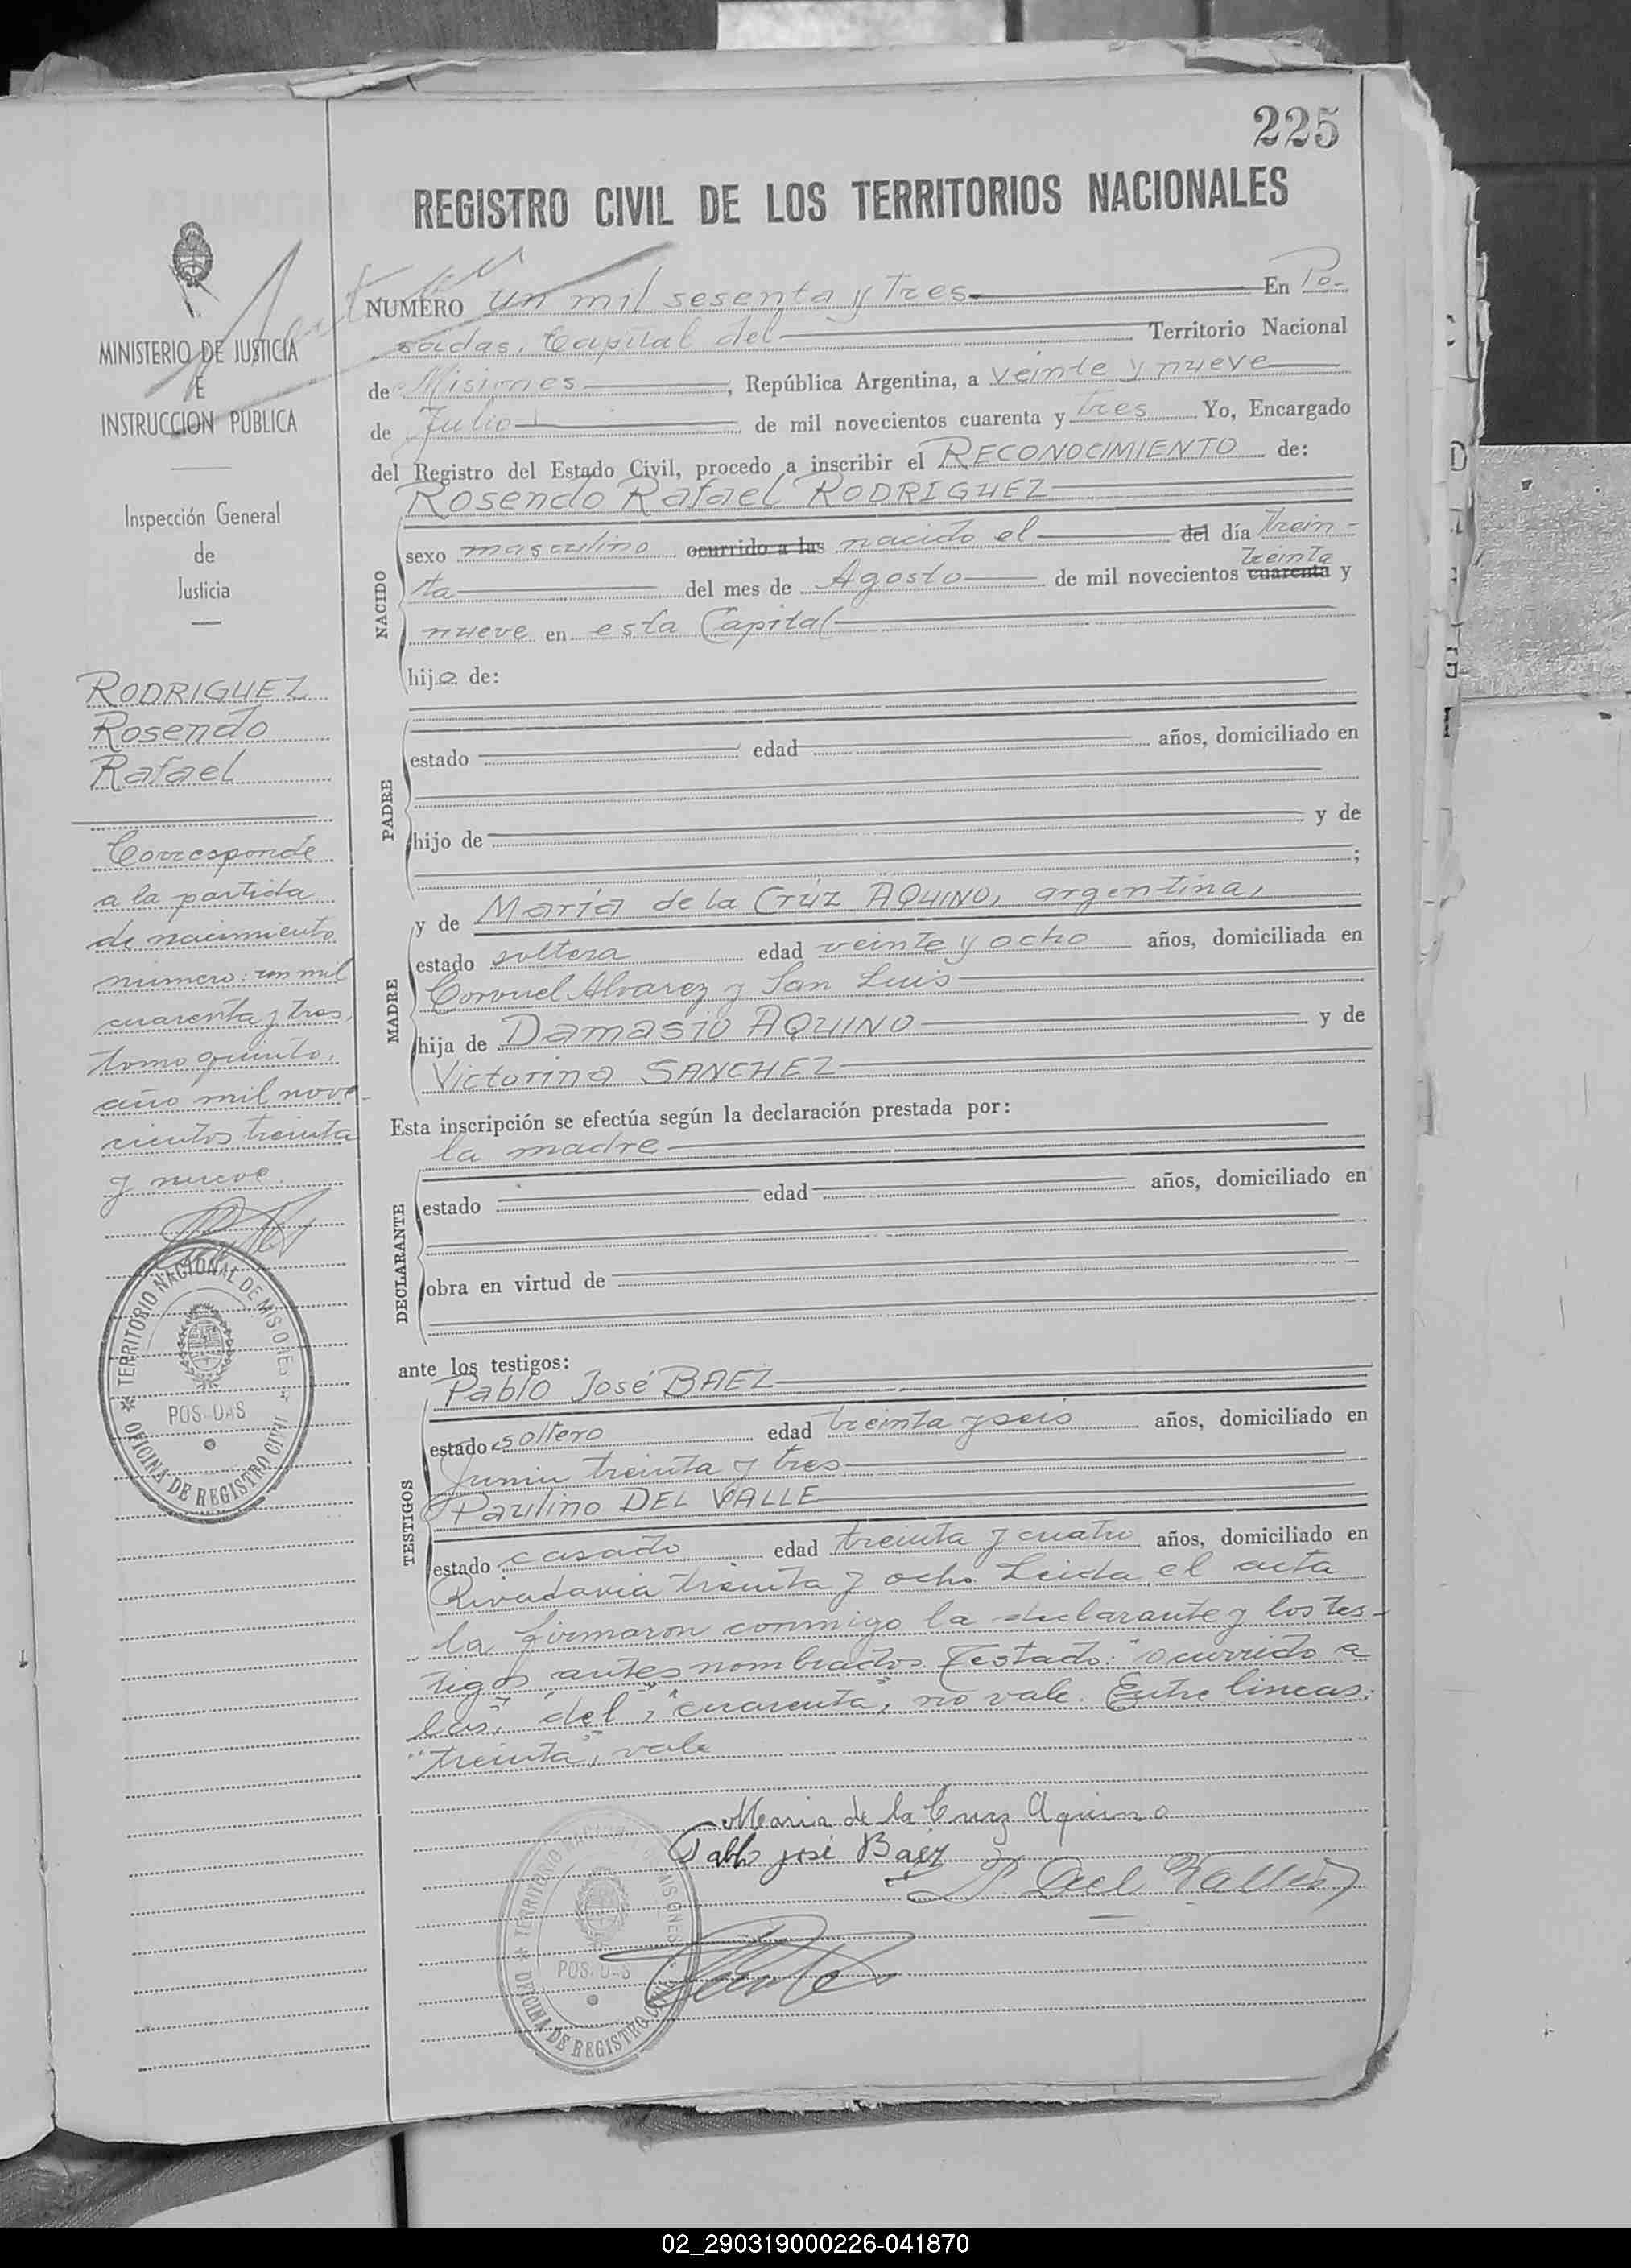 225
REGISTRO CIVIL DE LOS TERRITORIOS NACIONALES
MINISTERIO DE JUSTICIA
E
INSTRUCCION PUBLICA
Inspección General
de
Justicia
RODRIGUEZ
Rosendo
Rafael
Corresponde
a la partida
de nacimiento
número: un mil
cuarenta y tres,
tomo quinto,
año mil nove-
cientos treinta
y nueve.
TERRITORIO NACIONAL DE MISIONES
POSADAS
OFICINA DE REGISTRO CIVIL
NUMERO un mil sesenta y Tres En Po-
sadas, Capital del Territorio Nacional
de Misiones, República Argentina, a veinte y nueve
de Julio de mil novecientos cuarenta y tres Yo, Encargado
del Registro del Estado Civil, procedo a inscribir el RECONOCIMIENTO de:
NACIDO
Rosendo Rafael RODRIGUEZ
sexo masculino ocurrido a las nacido el del día trein-
treinta
ta del mes de Agosto de mil novecientos cuarenta y
nueve en esta Capital
hijo de:
PADRE
estado edad años, domiciliado en
hijo de y de
;
MADRE
y de María de la Crúz AQUINO, argentina,
estado soltera edad veinte y ocho años, domiciliada en
Coronel Alvarez y San Luis
hija de Damasio AQUINO y de
Victorina SANCHEZ
Esta inscripción se efectúa según la declaración prestada por:
la madre
DECLARANTE
estado edad años, domiciliado en
obra en virtud de
ante los testigos:
TESTIGOS
Pablo José BAEZ
estado soltero edad treinta y seis años, domiciliado en
Junin treinta y tres
Paulino DEL VALLE
estado casado edad treinta y cuatro años, domiciliado en
Rivadavia treinta y ocho Leida el acta
la firmaron conmigo la declarante y los tes-
tigos antes nombrados. Testado: "ocurrido a
las", "del", "cuarenta", no vale. Entre lineas:
"treinta", vale
Maria de la Cruz Aquino
Pablo josé Baéz
P. Del Valle
TERRITORIO NACIONAL DE MISIONES
POSADAS
OFICINA DE REGISTRO CIVIL
02_290319000226-041870